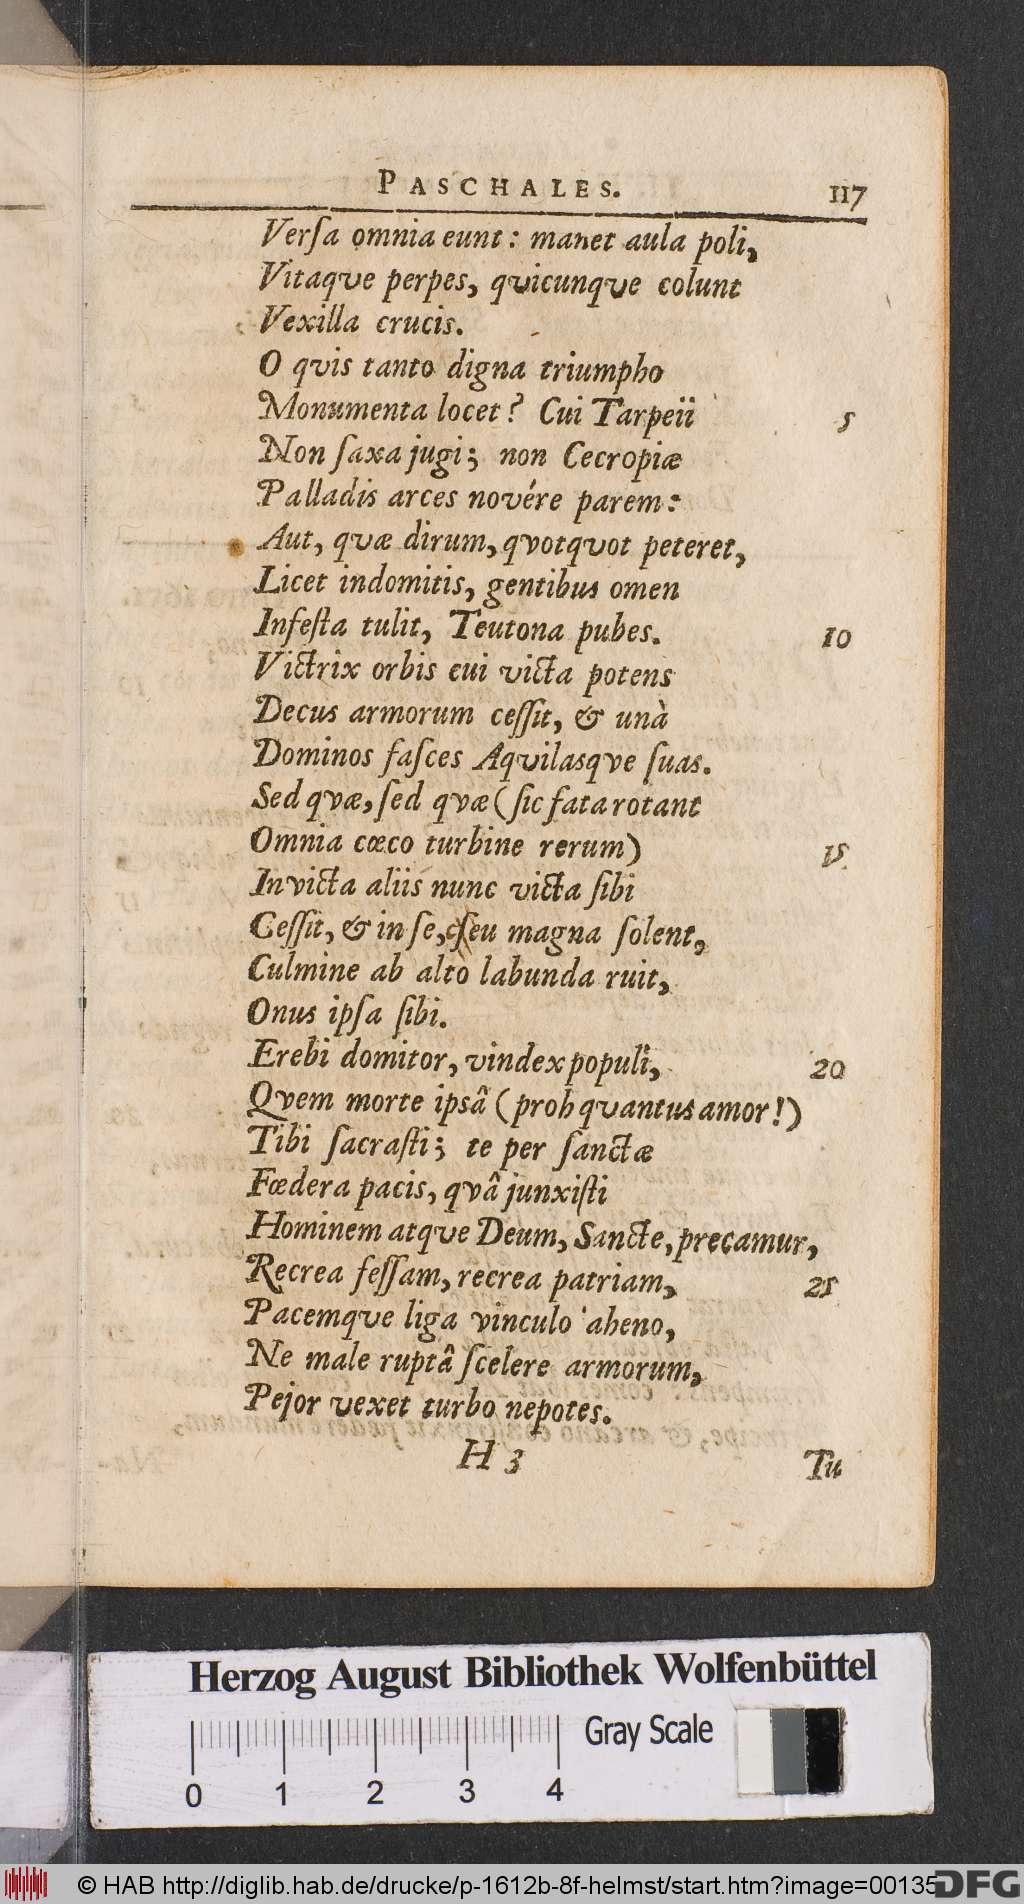 PASCHALES. 117
Verſa omnia eunt: manet aula poli,
Vitaqve perpes, qvicunqve colunt
Vexilla crucis.
O qvis tanto digna triumpho
Monumenta locet? Cui Tarpeii 5
Non ſaxa jugi; non Cecropiæ
Palladis arces novére parem:
Aut, qvæ dirum, qvotqvot peteret,
Licet indomitis, gentibus omen
Infeſta tulit, Teutona pubes. 10
Victrix orbis cui victa potens
Decus armorum ceſſit, & unà
Dominos faſces Aqvilasqve ſuas.
Sed qvæ, ſed qvæ (ſic fata rotant
Omnia cœco turbine rerum) 15
Invicta aliis nunc victa ſibi
Ceſſit, & in ſe, ſeu magna ſolent,
Culmine ab alto labunda ruit,
Onus ipſa ſibi.
Erebi domitor, vindex populi, 20
Qvem morte ipsâ (proh qvantus amor!)
Tibi ſacraſti; te per ſanctæ
Fœdera pacis, qvâ junxiſti
Hominem atqve Deum, Sancte, precamur,
Recrea feſſam, recrea patriam, 25
Pacemqve liga vinculo aheno,
Ne male ruptâ ſcelere armorum,
Pejor vexet turbo nepotes.
H 3 Tu
Herzog August Bibliothek Wolfenbüttel
Gray Scale
0 1 2 3 4
© HAB http://diglib.hab.de/drucke/p-1612b-8f-helmst/start.htm?image=00135
DFG